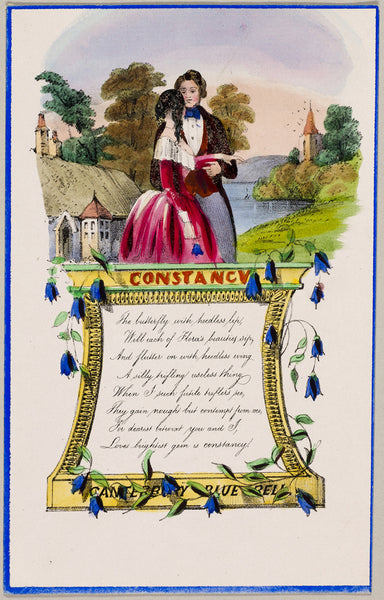 CONSTANCY
The butterfly with heedless lip,
Will each of Flora's beauties sip,
And flutter on with heedless wing
A silly trifling useless thing
When I such futile triflers see,
They gain nought but contempt from me,
For dearest betwixt you and I
Loves brightest gem is constancy!
CANTERBURY BLUE BELL